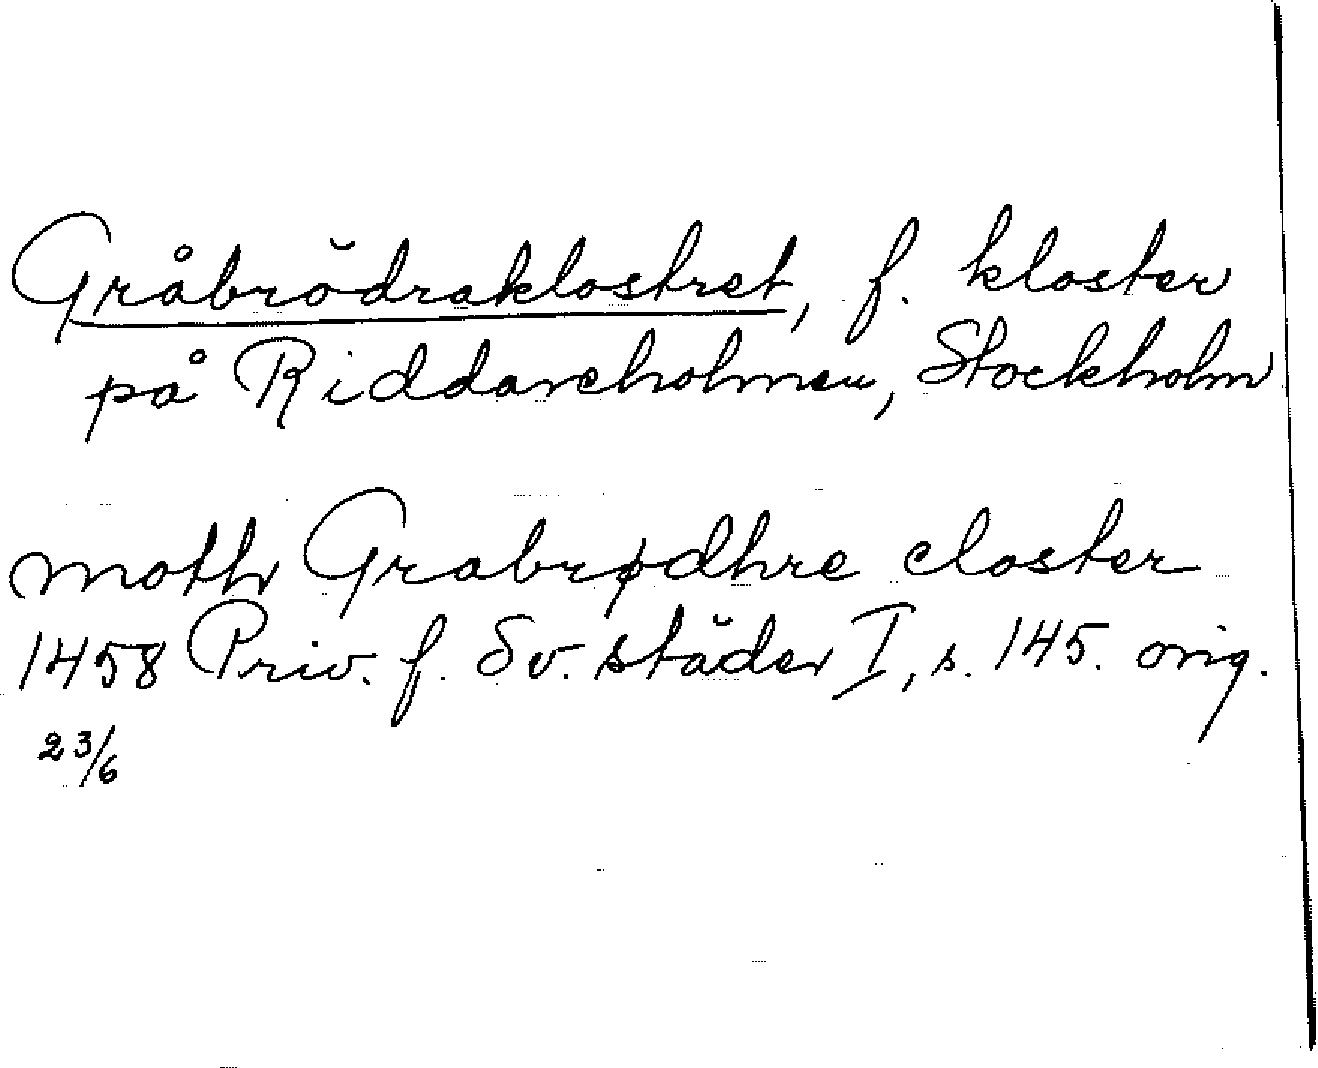 Gråbrödraklostret, f. kloster
på Riddareholmen, Stockholm
moth Grabrødhre closter
1458 Priv. f. Sv. städer I, s. 145. orig.
23/6